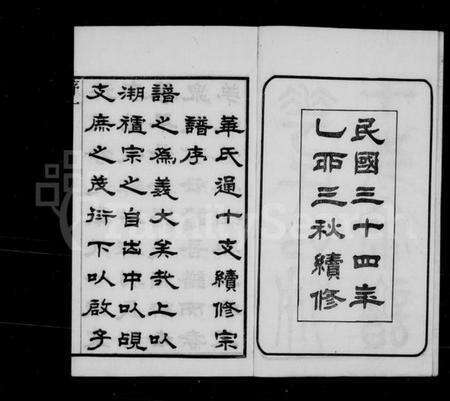 民國三十四年
乙酉三秋續修
華氏通十支續修宗
譜序
譜之為義大矣哉上以
溯禮宗之自出中以覘
支庶之茂衍下以啟子
序一